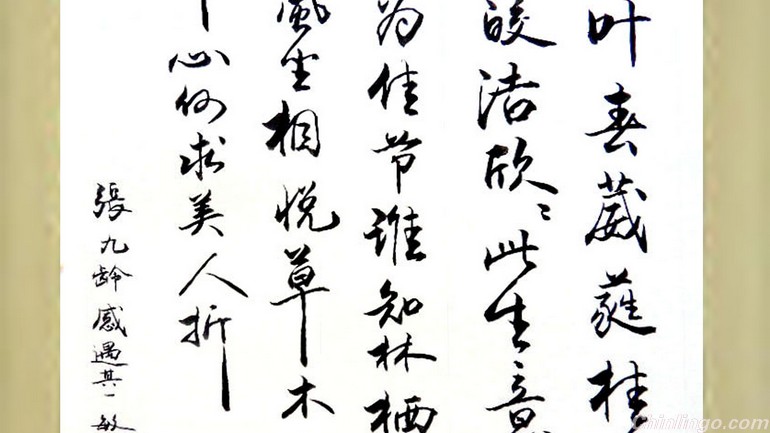 叶春葳蕤桂
皎洁欣〻此生意
为佳节谁知林栖
风坐相悦草木
心何求美人折
張九龄感遇其一敏
Chinlingo.com